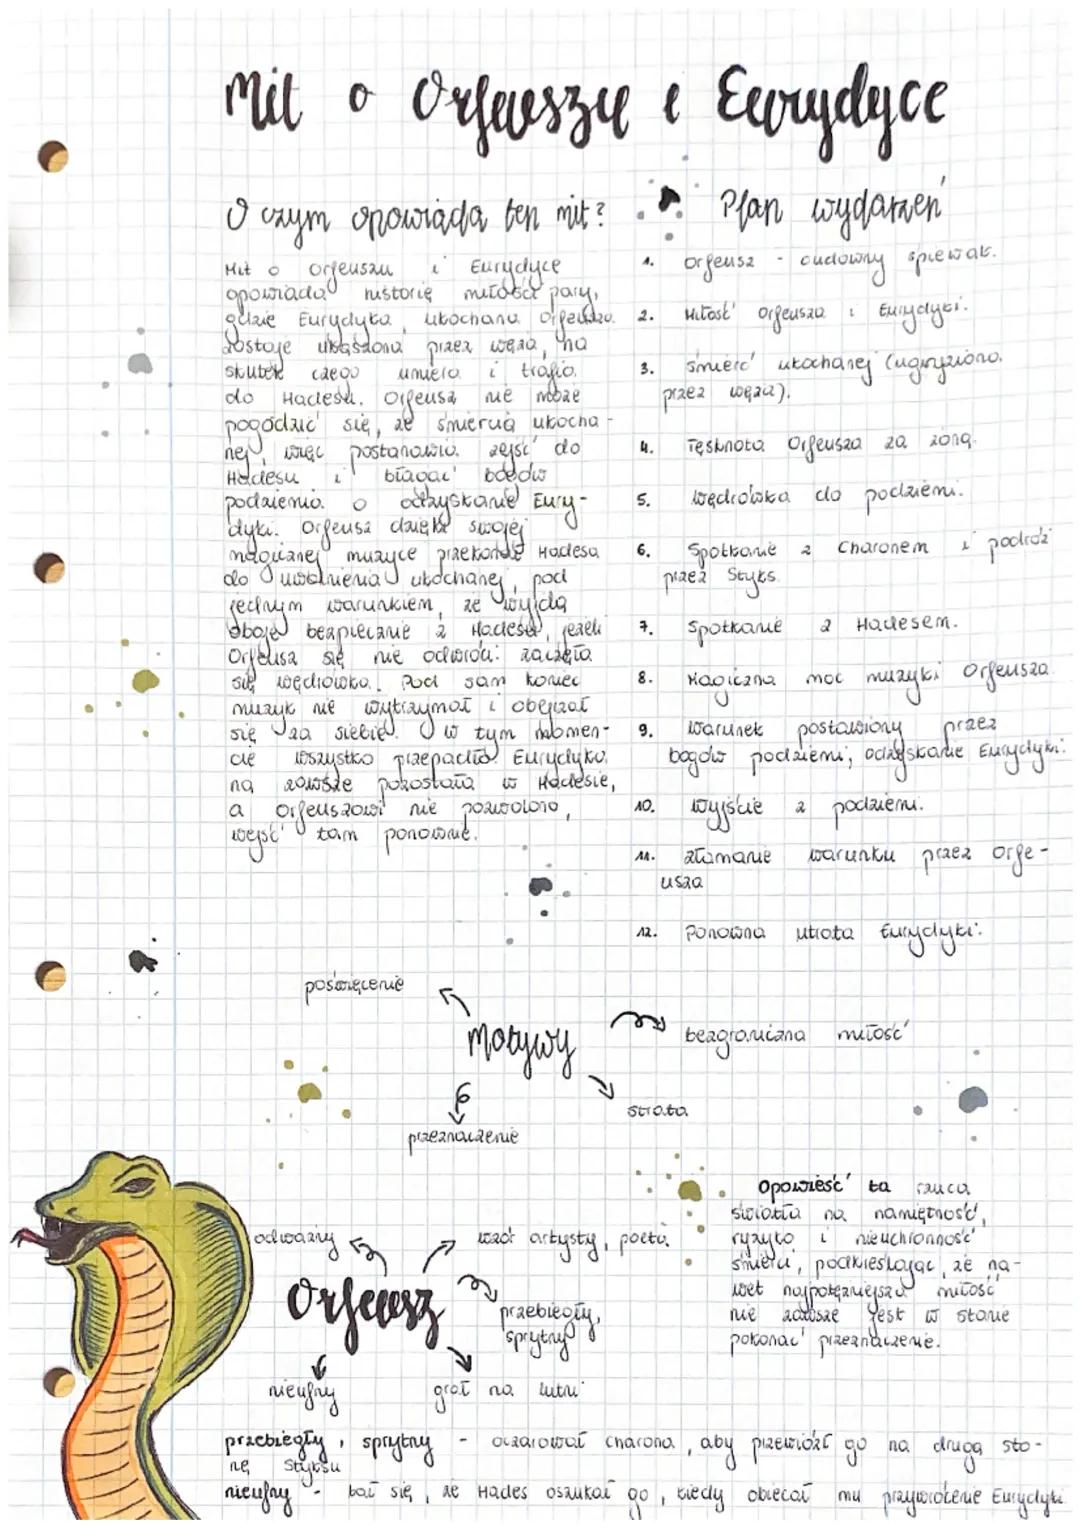 Mit o Orfeuszu i Eurydyce
O czym opowiada ten mit?
Mit o Orfeuszu i Eurydyce
opowiada historię miłości pary,
gdzie Eurydyka, ukochana Orfeusza.
zostaje ukąszona przez węża, na
skutek czego umiera i trafia.
do Hadesu. Orfeusz nie może
pogodzić się, ze śmiercią ukocha-
nej, więc postanawia zejść do
Hadesu i błagać bogów
podziemia o odzyskanie Eury-
dyki. Orfeusz dzięki swojej
magicznej muzyce przekonuje Hadesa
do uwolnienia ukochanej, pod
jednym warunkiem, że wyjdą
oboje bezpiecznie z Hadesu, jeżeli
Orfeusz się nie odwróci. zaczęła
się wędrówka. Pod sam koniec
muzyk nie wytrzymał i obejrzał
się za siebie. W tym momen-
cie wszystko przepadło. Eurydyka
na zawsze pozostała w Hadesie,
a Orfeuszowi nie pozwolono,
wejść tam ponownie.
Plan wydarzeń
1. Orfeusz - cudowny śpiewak.
2. Miłość Orfeusza i Eurydyki.
3. śmierć ukochanej (ugryziona
przez węża).
4. Tęsknota Orfeusza za żoną.
5. wędrówka do podziemi.
6. Spotkanie z Charonem i podróż
przez Styks.
7. Spotkanie z Hadesem.
8. Magiczna moc muzyki Orfeusza
9. Warunek postawiony przez
bogów podziemi; odzyskanie Eurydyki.
10. wyjście z podziemi.
11. złamanie warunku przez Orfe-
usza
12. Ponowna utrata Eurydyki.
poświęcenie
Motywy
bezgraniczna miłość
strata
przeznaczenie
Opowieść ta rzuca
światła na namiętność,
ryzyko i nieuchronność
śmierci, podkreślając, że na-
wet najpotężniejsza miłość
nie zawsze jest w stanie
pokonać przeznaczenie.
odważny
wzór artysty, poeta
Orfeusz
przebiegły,
sprytny
nieufny
grał na lutni
przebiegły, sprytny - oczarował Charona, aby przewiózł go na drugą sto-
nę Styksu
nieufny - bał się, że Hades oszukał go, kiedy obiecał mu przywrócenie Eurydyki